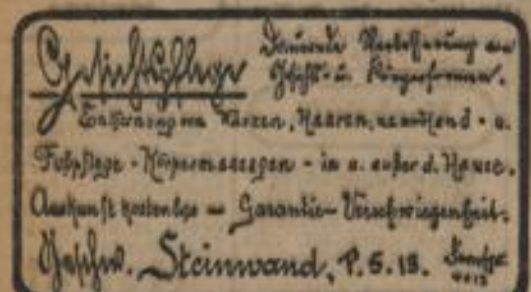 Gesichtspflege Dauernde Verbesserung der
Gesichts- u. Körperformen.
Entfernung von Warzen, Haaren, - u.
Fußpflege - Körpermassagen - in u. außer d. Hause.
Auskunft kostenlos - Garantie - Verschwiegenheit.
Geschw. Steinwand, P. 5. 13.